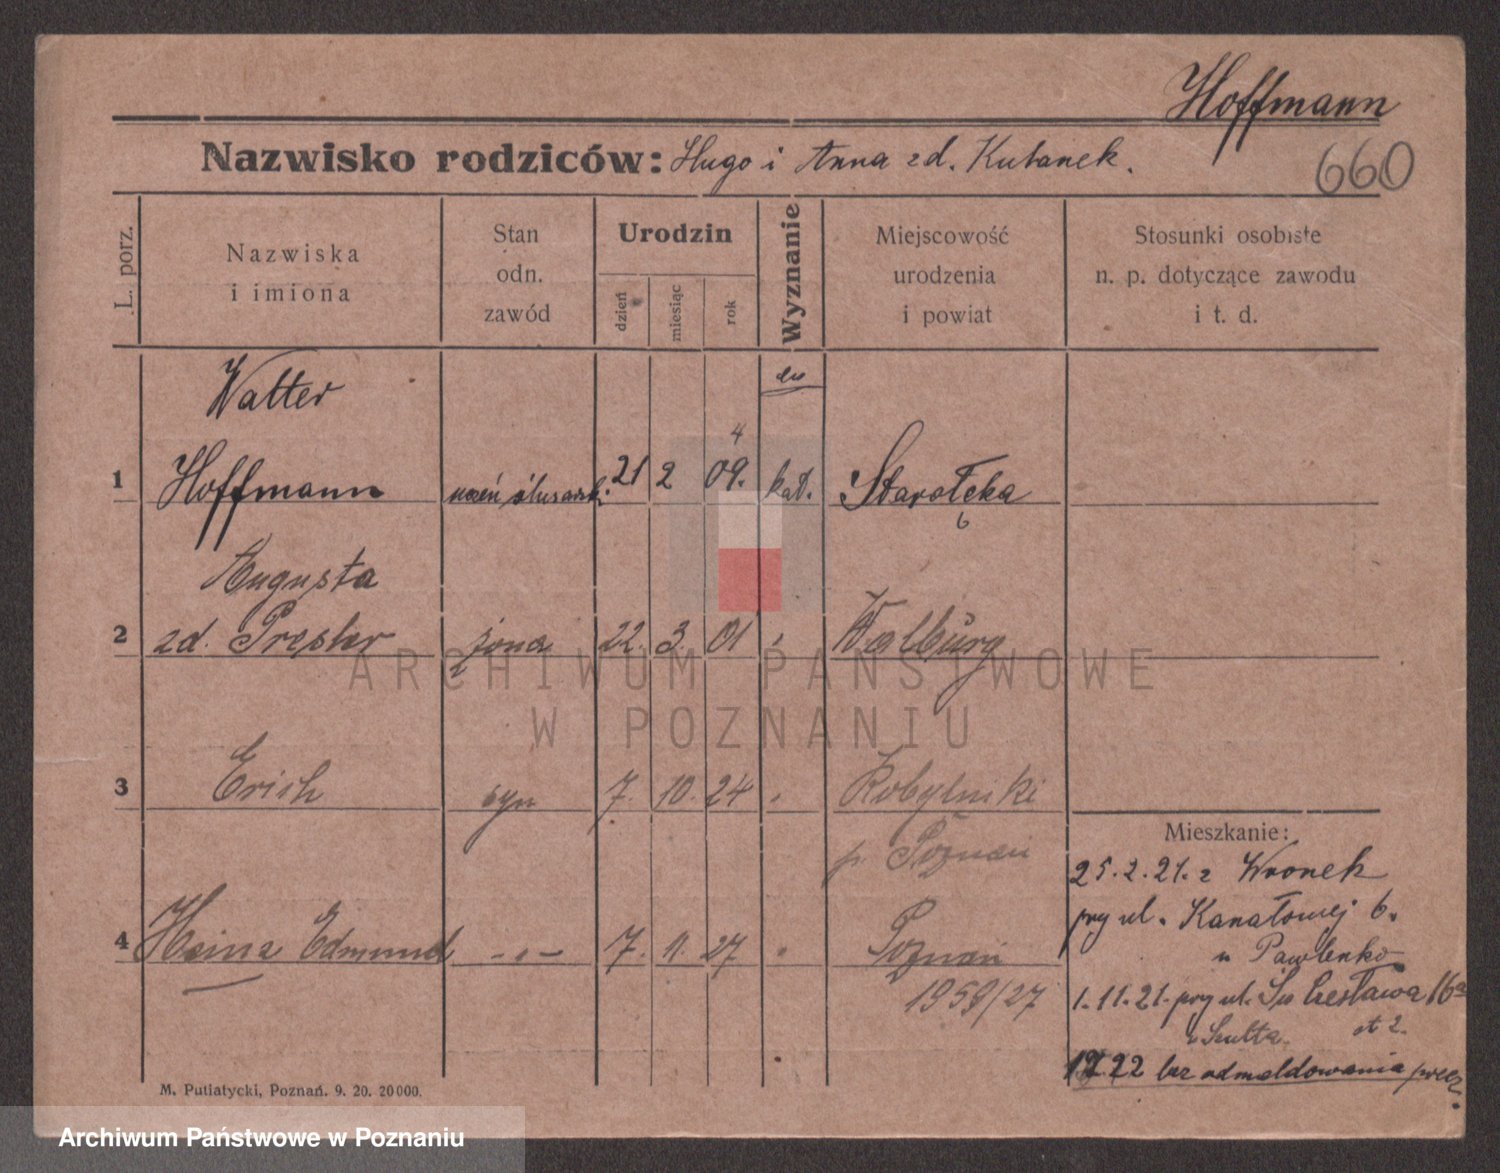 Hoffmann
660
Nazwisko rodziców: Hugo i Anna zd. Kubanek.
L. porz.
Nazwiska
i imiona
Stan
odn.
zawód
Urodzin
dzień
miesiąc
rok
Wyznanie
Miejscowość
urodzenia
i powiat
Stosunki osobiste
n. p. dotyczące zawodu
i t. d.
Walter
4
1 Hoffmann uczeń ślusarski. 21 2 09. kat. Starołęka
6
Augusta
2 zd. Presler żona 22. 3. 01 Walburg
3 Erich syn 7. 10. 24 Kobylniki
p. Poznań
4 Heinz Edmund -„- 7. 11. 27 Poznań
1958/27
Mieszkanie:
25.2.21. z Wronek
przy ul. Kanałowej 6.
u Pawlenko
1.11.21. przy ul. Św Czesława 16a
u Szulta. st 2.
22 bez odmeldowania precz.
M. Putiatycki, Poznań. 9. 20. 20000.
ARCHIWUM PAŃSTWOWE
W POZNANIU
Archiwum Państwowe w Poznaniu